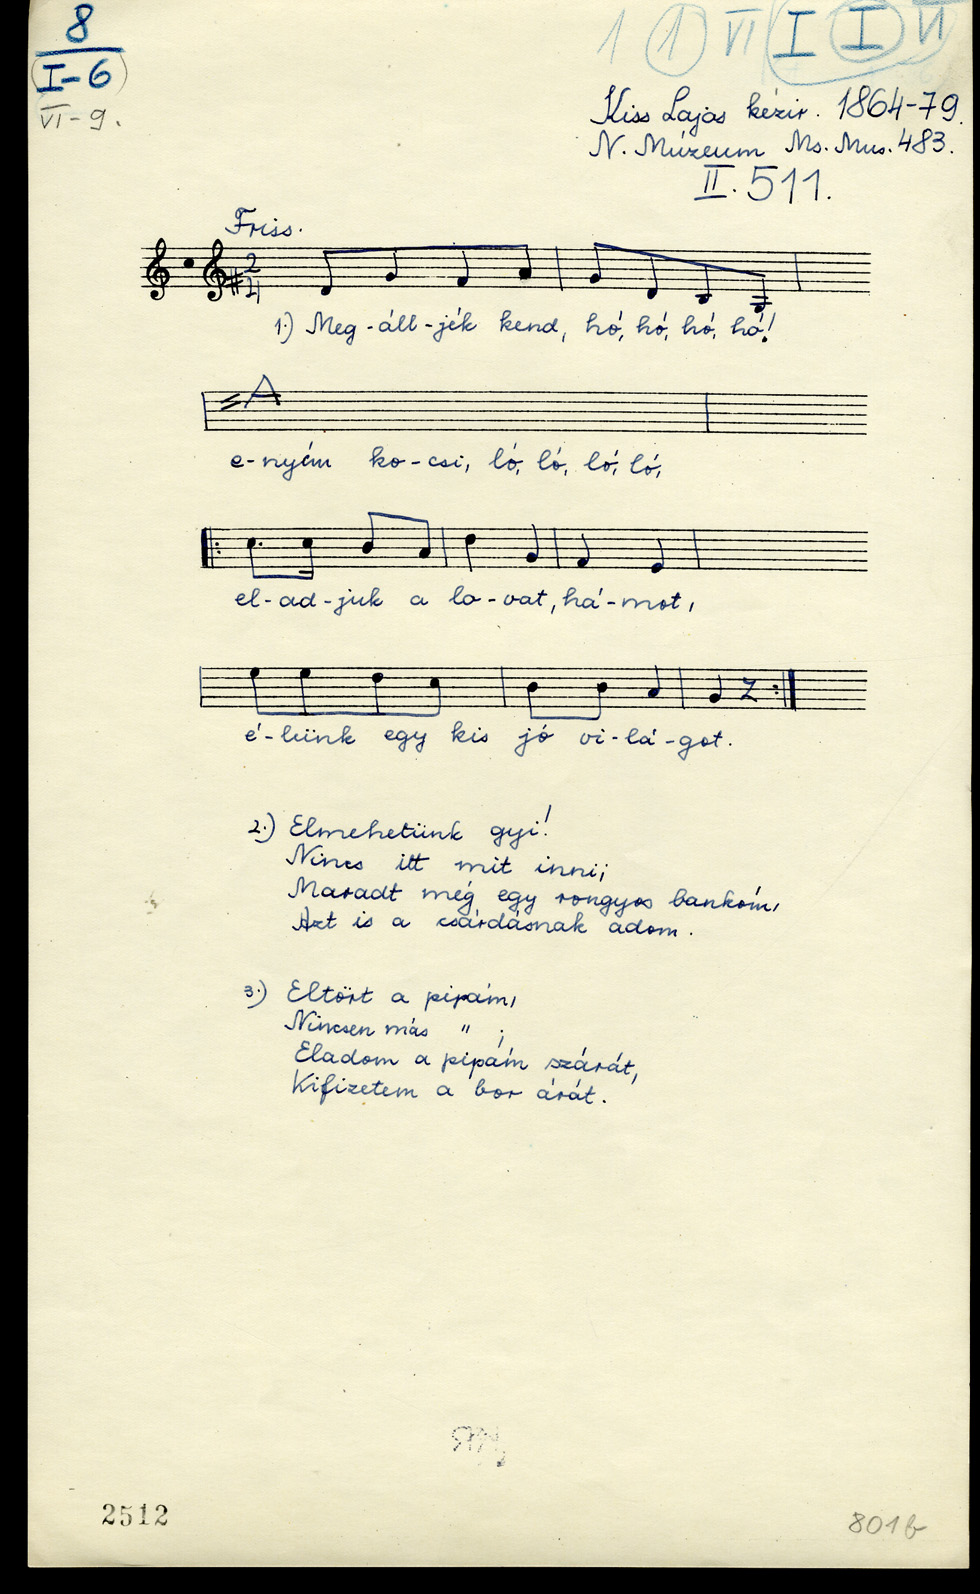 8
I-6
VI-9.
1 1 VI I I VI
Kiss Lajos kézir. 1864-79.
N. Múzeum Ms. Mus. 483.
II. 511.
Friss.
2
4
1.) Meg-áll-jék kend, hó, hó, hó, hó!
A
e-nyém ko-csi, ló, ló, ló, ló,
el-ad-juk a lo-vat, há-mot,
é-lünk egy kis jó vi-lá-got.
2.) Elmehetünk gyi!
Nincs itt mit inni;
Maradt még egy rongyos bankóm,
Azt is a csárdásnak adom.
3.) Eltört a pipám,
Nincsen más " ;
Eladom a pipám szárát,
Kifizetem a bor árát.
2512
801b